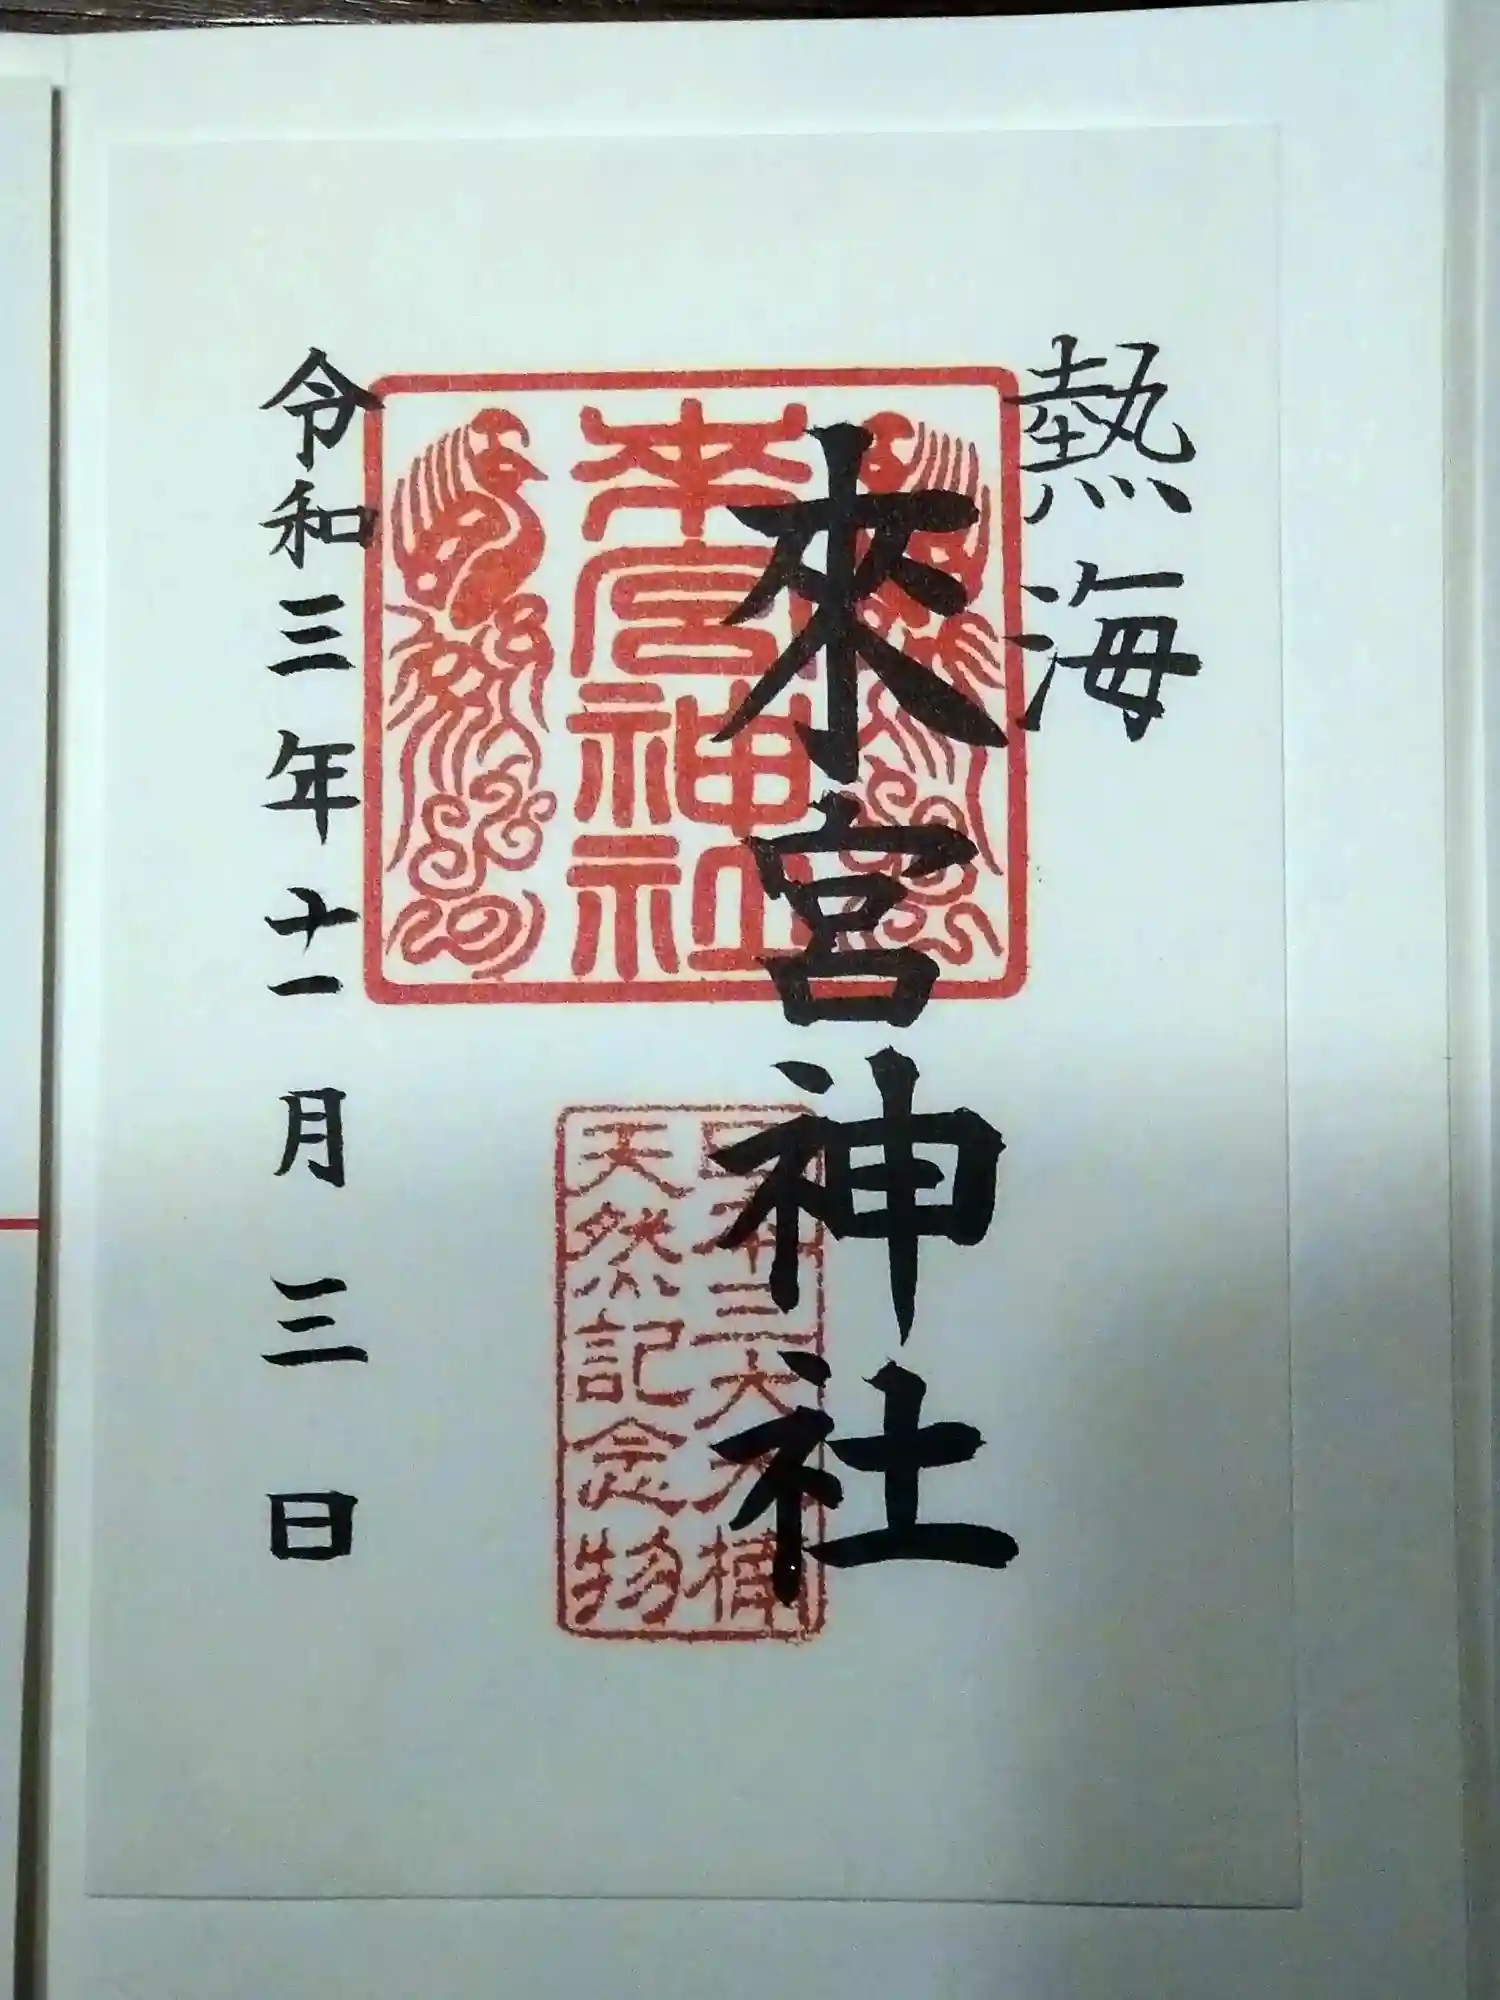 熱海
來宮神社
來宮神社
日本三大大楠
天然記念物
令和三年十一月三日